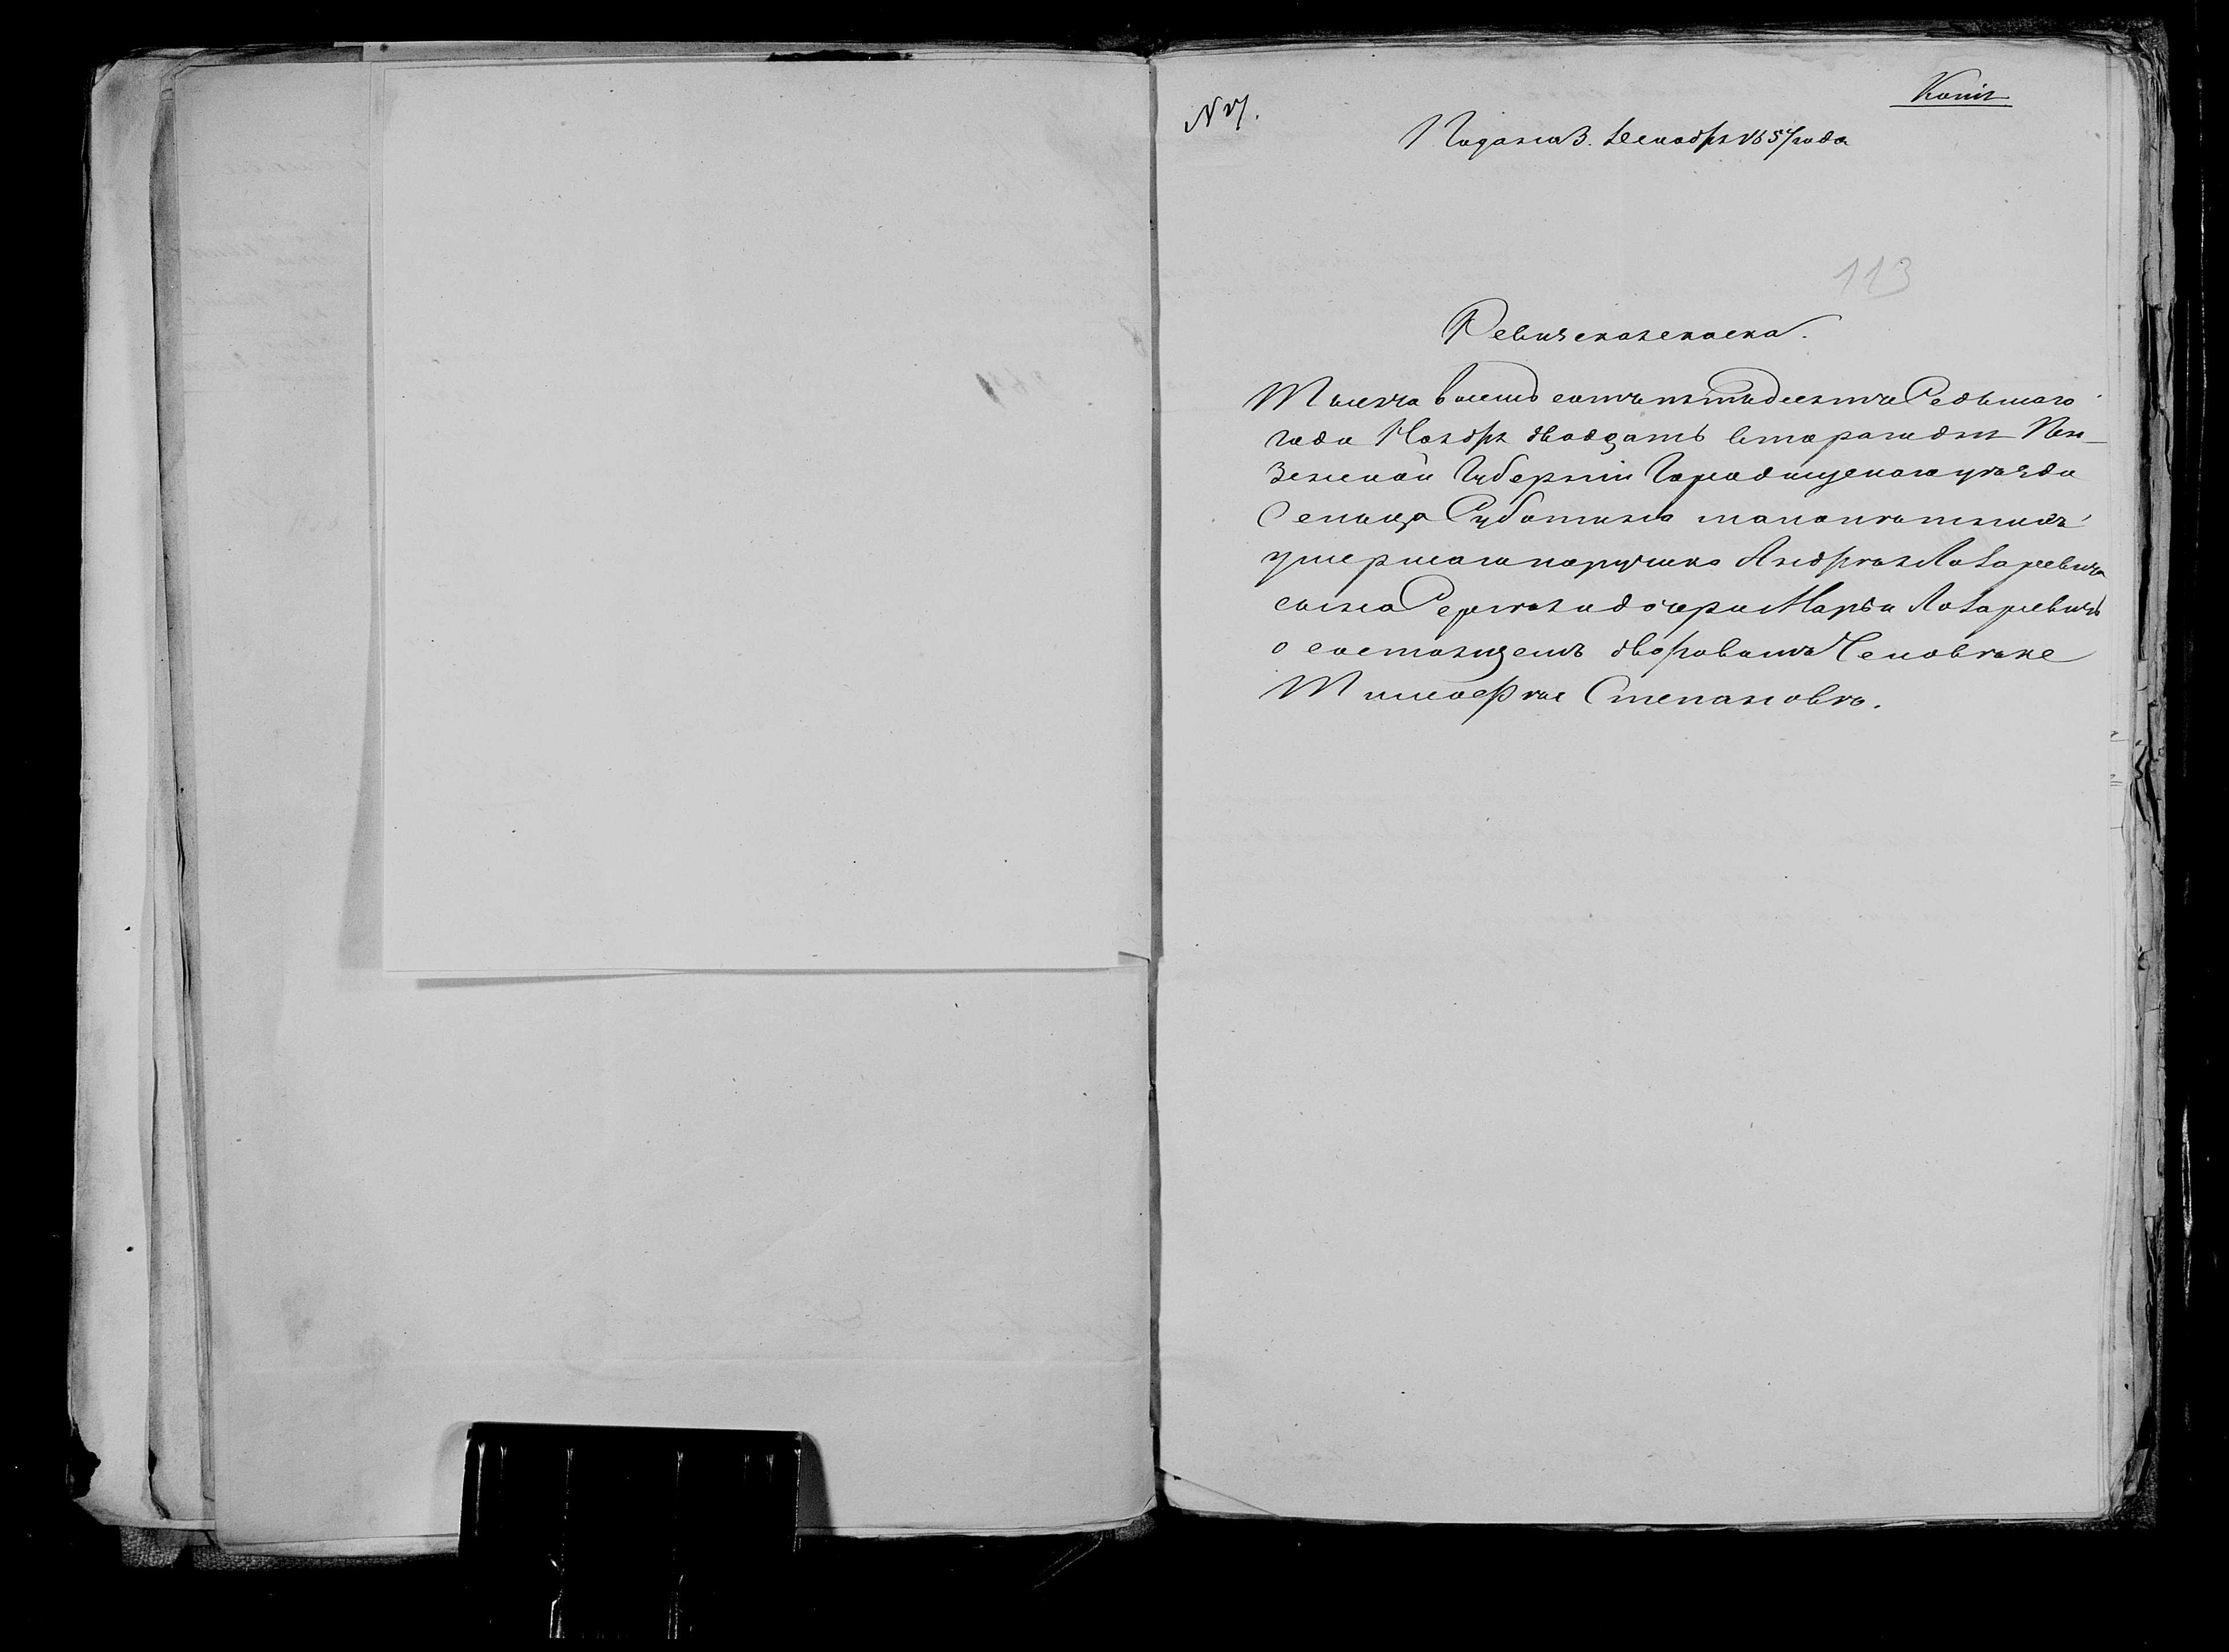 Копія
№ 7.
Подана 3. Декабря 1857 года
113
Ревизская сказка.
Тысяча восемь сотъ пятьдесятъ Седьмаго
года Ноября двадцать втораго дня Пен-
зенской Губерніи Городищенскаго уѣзда
Сельца Суботина малолѣтныхъ
умершаго поручика Андрея Лазаревича
сына Сергѣя и дочери Марьи Лазаревичъ
о состоящемъ дворовомъ Человѣке
Тимофѣе Степановѣ.